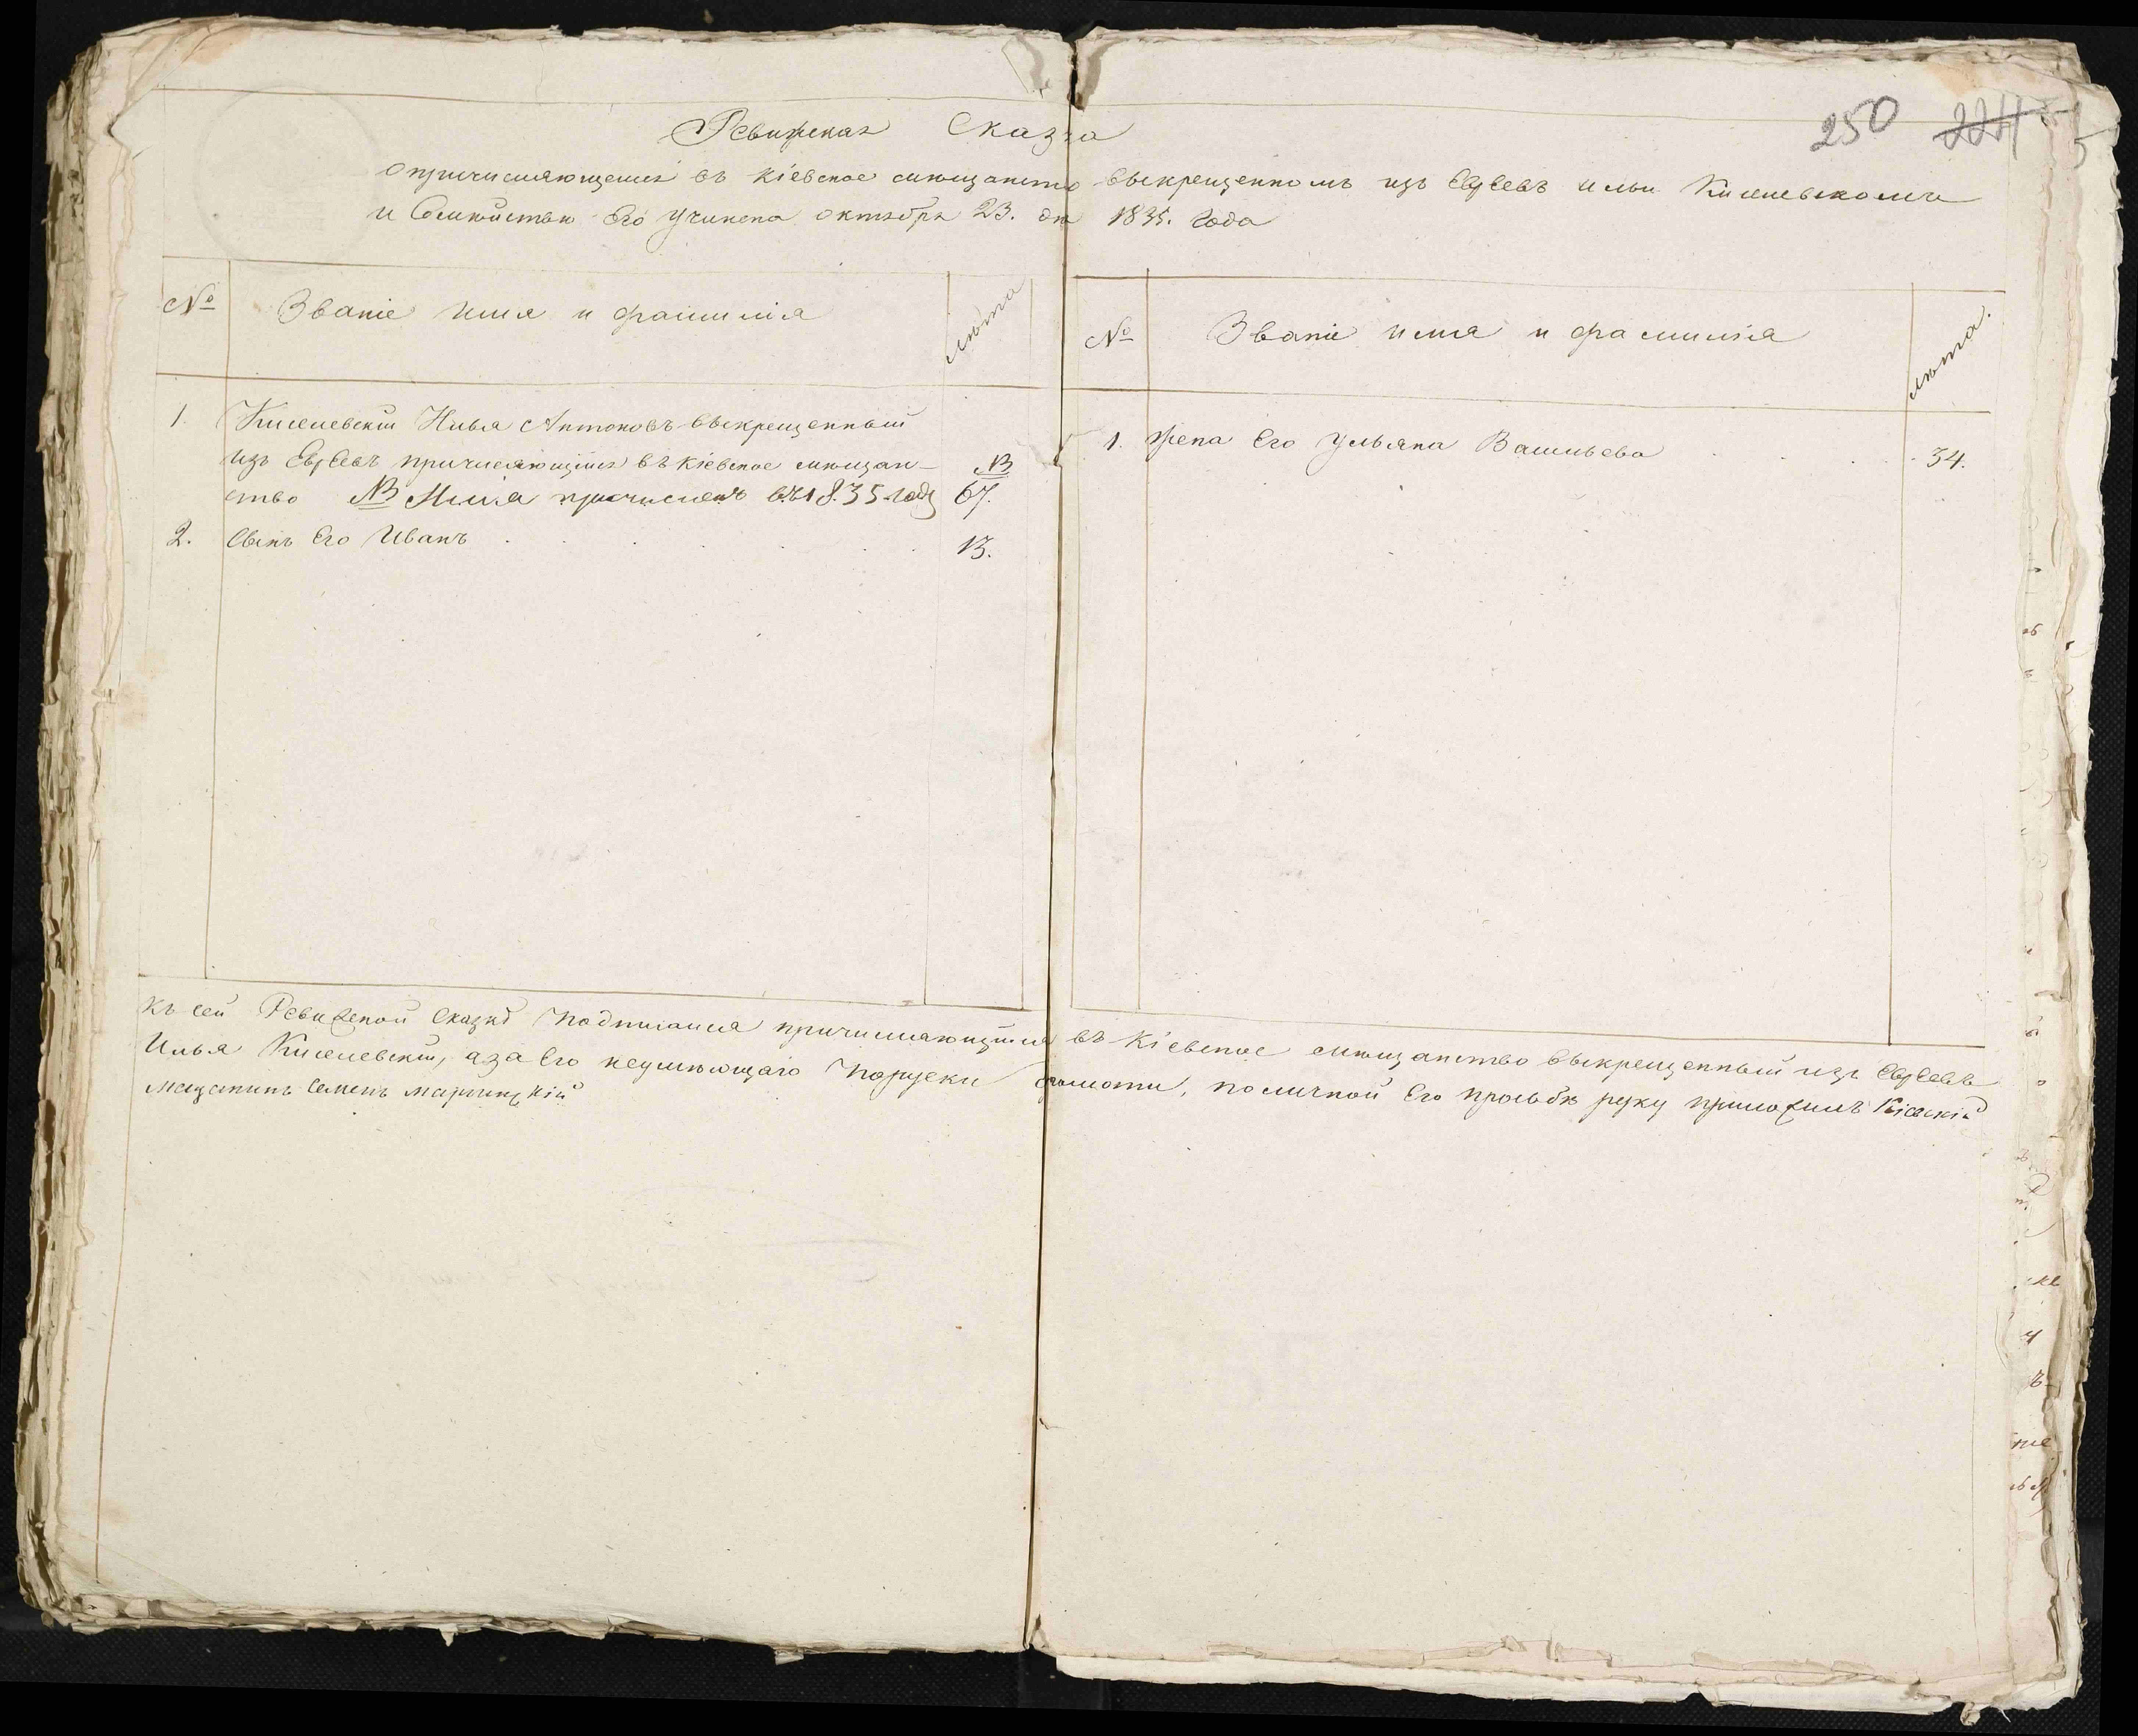 250 224
Ревизская Сказка
о причисляющемся въ Кіевское мѣщанство выкрещенномъ изъ Евреевъ Ильи Киселевскомъ
и Семѣйствѣ Его учинена октября 23. дня 1835. Года
№ Званіе имя и фамилія лѣта
№ Званіе имя и фамилія лѣта.
1. Киселевскій Илья Антоновъ выкрещенный
изъ Евреевъ причисляющійся въ Кіевское мѣщан-
ство NB Илья причисленъ въ 1835 году NB 67.
2. Сынъ Его Иванъ 13.
1. Жена Его Ульяна Васильева 34.
Къ сей Ревизской Сказкѣ Подписался причисляющійся въ Кіевское мѣщанство выкрещенный изъ Евреевъ
Илья Киселевскій, а за Его неумѣющаго Поруски грамоти, по личной Его прозьбѣ руку приложилъ Кіевскій
мещанинъ Семенъ